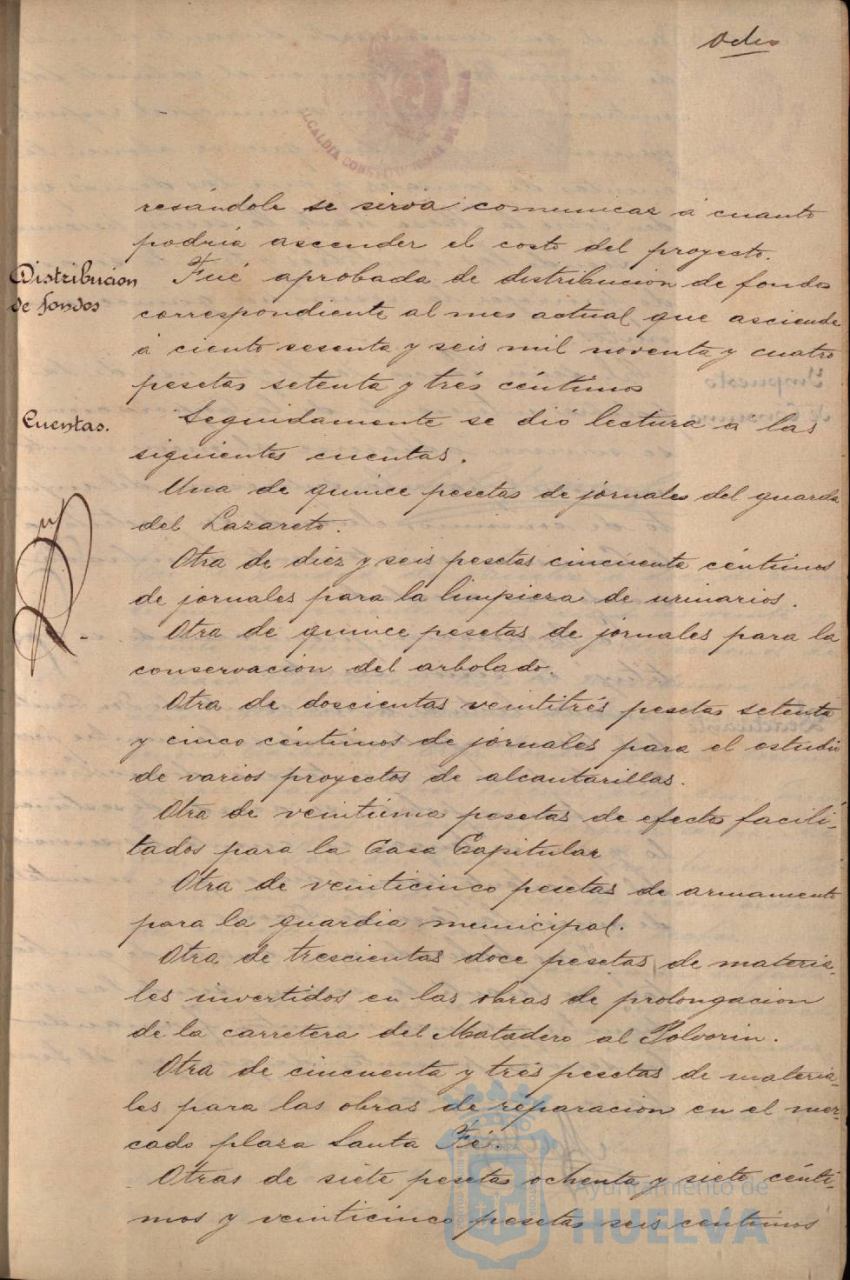 Ocho
ALCALDIA CONSTITUCIONAL DE HUELVA
resándole se sirva comunicar á cuanto
podria ascender el costo del proyecto.
Distribucion
de fondos
Fué aprobada de distribucion de fondos
correspondiente al mes actual que asciende
á ciento sesenta y seis mil noventa y cuatro
pesetas setenta y trés céntimos
Cuentas.
Seguidamente se dió lectura a las
siguientes cuentas.
Una de quince pesetas de jornales del guarda
del Lazareto.
Otra de diez y seis pesetas cincuenta céntimos
de jornales para la limpieza de urinarios.
Otra de quince pesetas de jornales para la
conservacion del arbolado.
Otra de doscientas veintitrés pesetas setenta
y cinco céntimos de jornales para el estudio
de varios proyectos de alcantarillas.
Otra de veintiuna pesetas de efectos facili-
tados para la Casa Capitular
Otra de veinticinco pesetas de armamento
para la guardia municipal.
Otra de trescientas doce pesetas de materia-
les invertidos en las obras de prolongacion
de la carretera del Matadero al Polvorin.
Otra de cincuenta y trés pesetas de materia-
les para las obras de reparacion en el mer-
cado plaza Santa Fé.
Otras de siete pesetas ochenta y siete cénti-
mos y veinticinco pesetas seis centimos
Ayuntamiento de
HUELVA